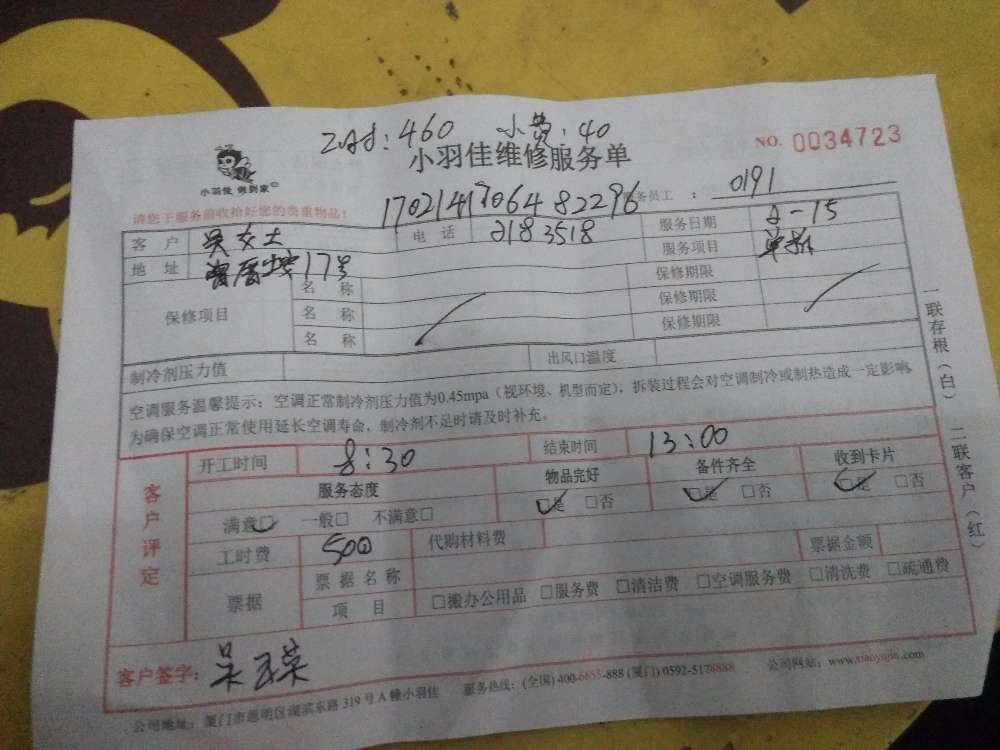 460 小费:40
小羽佳维修服务单
NO. 0034723
小羽佳 做到家
请您于服务前收拾好您的贵重物品!
17021417064 82296 务员工 : 0191
客 户 吴女士 电 话 2183518 服务日期 2-15
地 址 17号 服务项目
保修项目 名 称 保修期限
名 称 保修期限
名 称 保修期限
制冷剂压力值 出风口温度
空调服务温馨提示:空调正常制冷剂压力值为0.45mpa(视环境、机型而定),拆装过程会对空调制冷或制热造成一定影响,
为确保空调正常使用延长空调寿命,制冷剂不足时请及时补充。
客户评定
开工时间 8:30 结束时间 13:00
服务态度 物品完好 备件齐全 收到卡片
满意□ 一般□ 不满意□ □是 □否 □是 □否 □是 □否
工时费 500 代购材料费 票据金额
票据 票据名称
项 目 □搬办公用品 □服务费 □清洁费 □空调服务费 □清洗费 □疏通费
客户签字: 吴玉荣
公司地址:厦门市思明区湖滨东路 319 号 A 幢小羽佳 服务热线:(全国) 400-6655-888 (厦门) 0592-5178888 公司网站:www.xiaoyujia.com
一联存根(白) 二联客户(红)